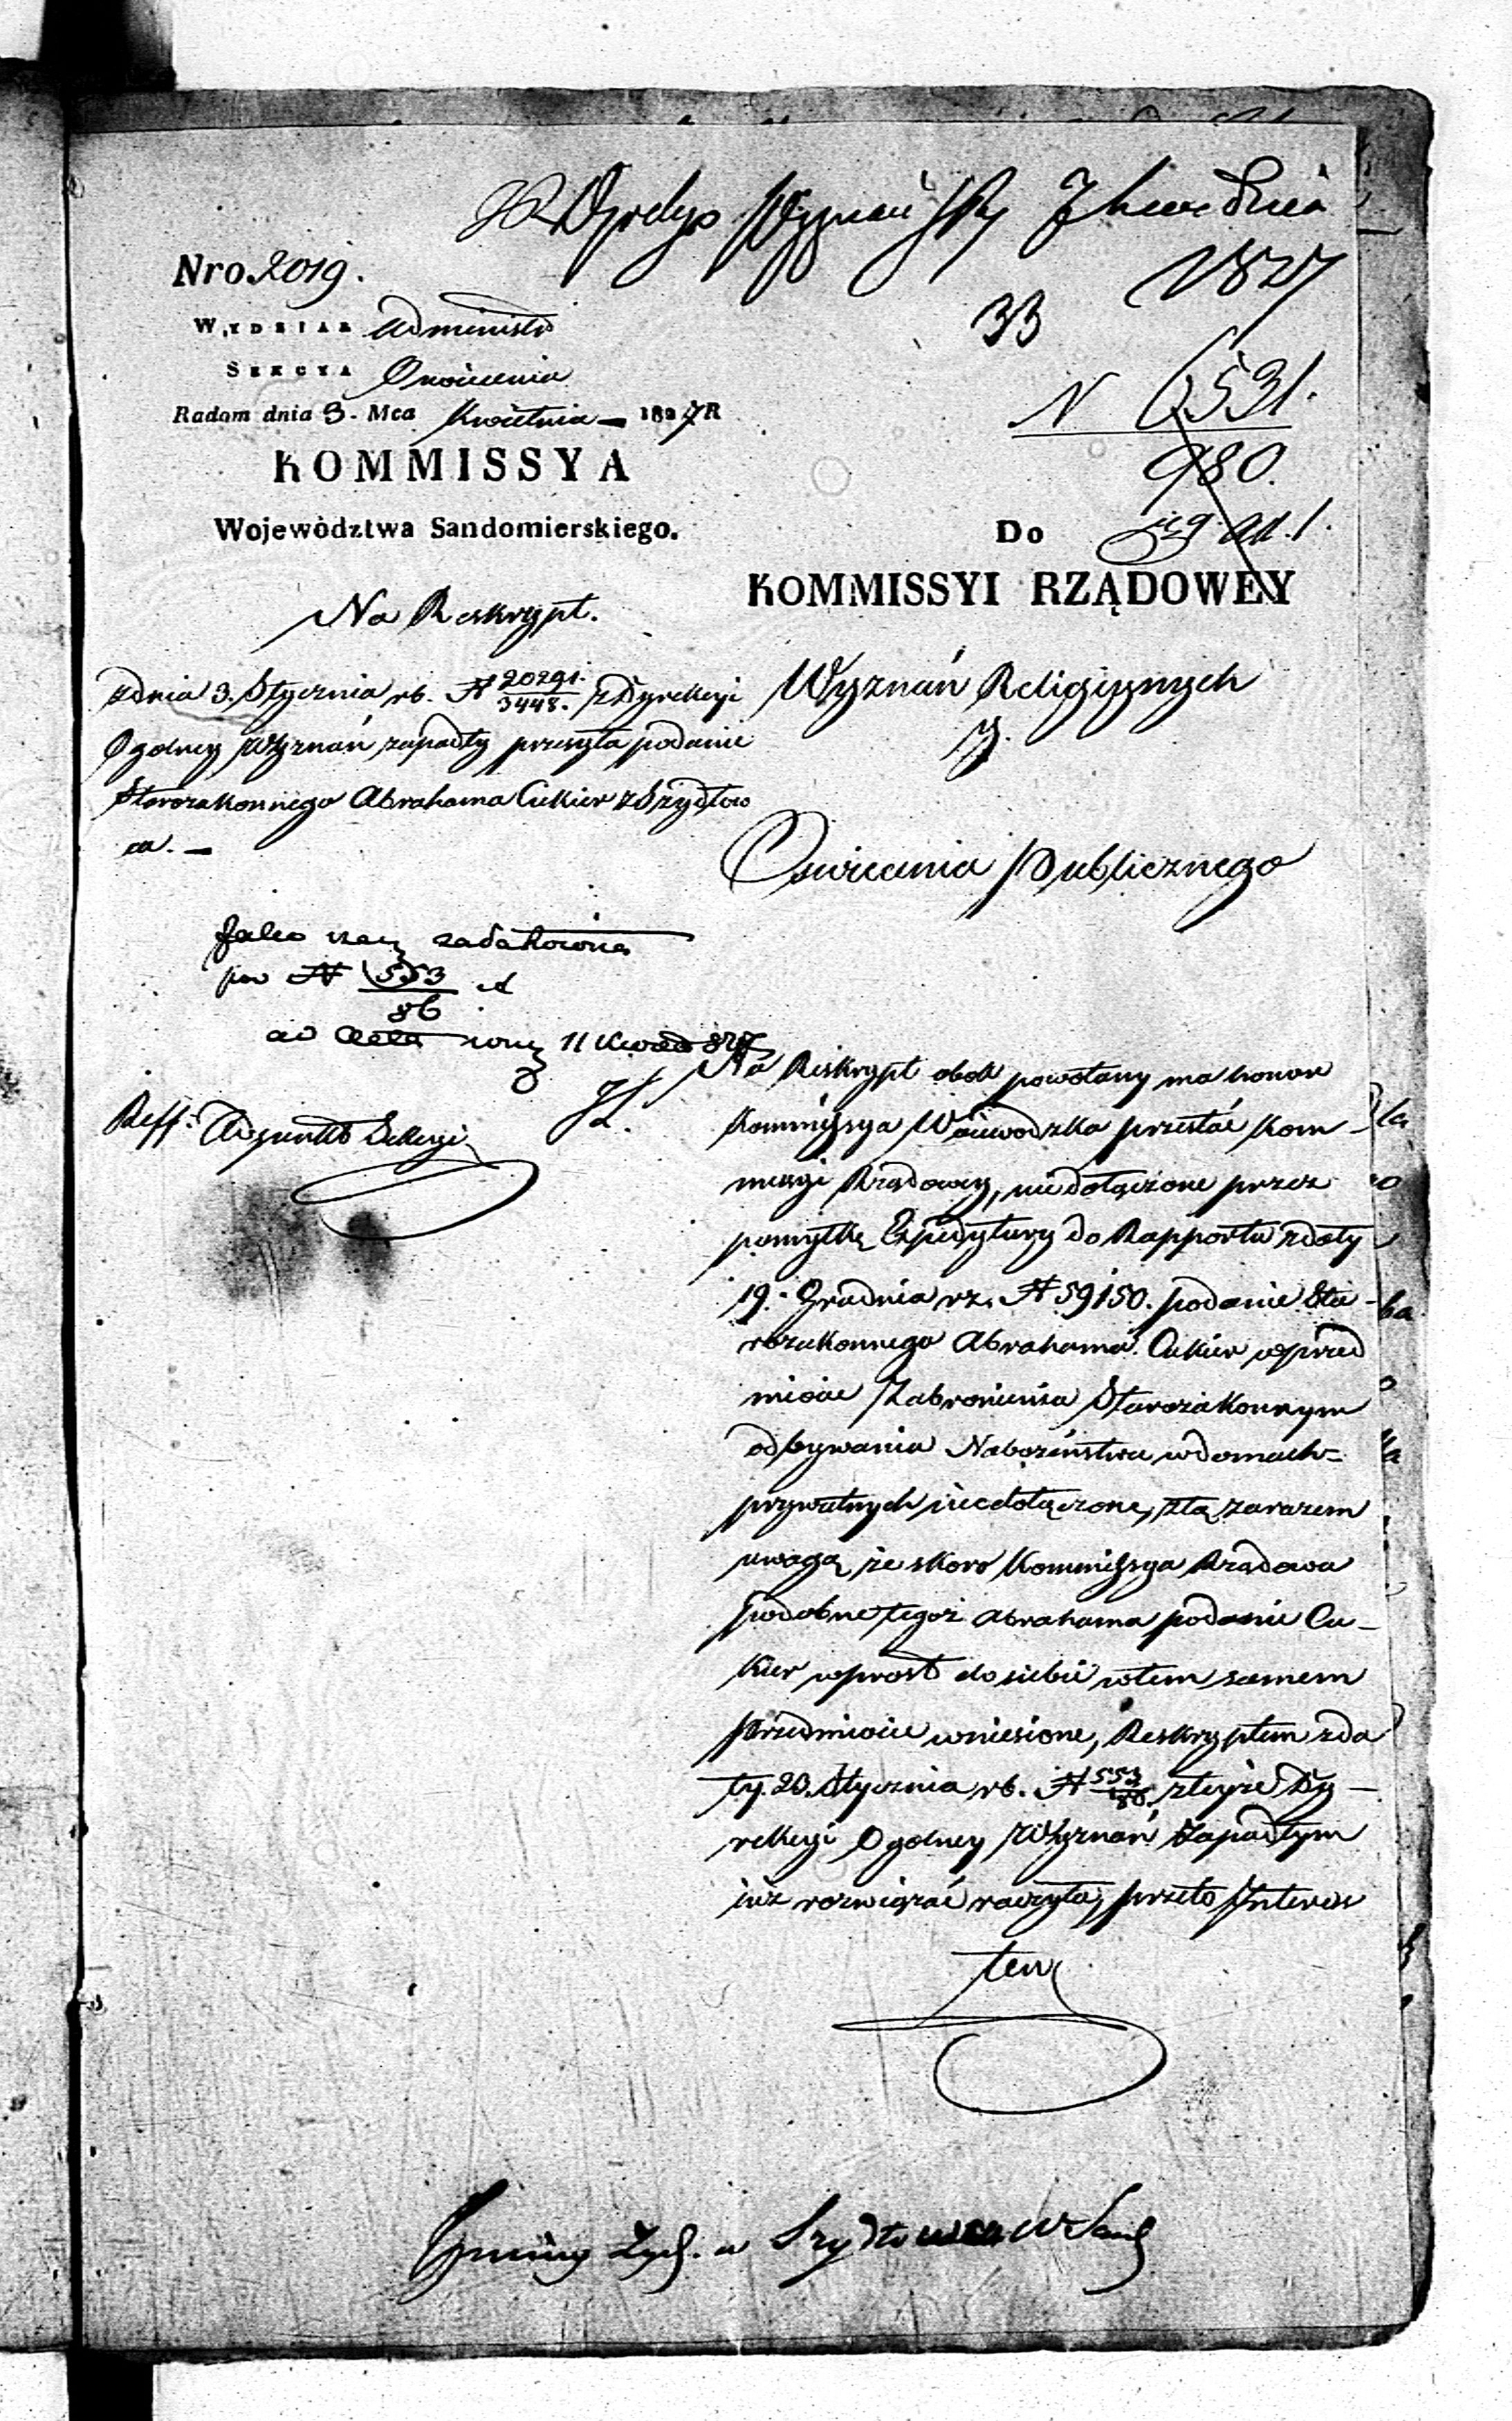 Nro. 2019.
WYDZIAŁ Administr
SEKCYA Oswiecenia
Radom dnia 3. Mca Kwietnia 1827 R
KOMMISSYA
Województwa Sandomierskiego.
1827
33
N 6531.
980.
Do
KOMMISSYI RZĄDOWEY
Wyznań Religiynych
J.
Oswiecenia Publicznego
Na Reskrypt.
z dnia 3. Stycznia rb. N 20291./3448. z Dyrekcyi
Ogolney Wyznań zapadły przesyła podanie
Starozakonnego Abrahama Cukier z Szydłow
ca. —
Jako rzecz zadekowona
po N 553/86 et
ad acta 11 Kwiet 827
Reff: Adjunkt Sekcyi
Na Reskrypt obok powołany ma honor
Kommissya Woiewodzka przesłać Kom-
missyi Rządowey, niedołączone przez
pomyłkę Expedytury do Rapportu z daty
19. Grudnia rz. N 59150. podanie Sta-
rozakonnego Abrahama Cukier w przed
miocie Zabronienia Starozakonnym
odbywania Nabożeństwa w domach
prywatnych niedołączone, z tą zarazem
uwagą, że skoro Kommissya Rządowa
podobne tegoż Abrahama podanie Cu-
kier wprost do siebie w tem samem
przedmiocie wniesione, Reskryptem z da
ty 23. Stycznia rb. N 553/86. z teyże Dy-
rekcyi Ogolney Wyznań Zapadłym
iuż rozwiązać raczyła, przeto Interes
ten
Gminy Żyd. w Szydłowcu W Sand